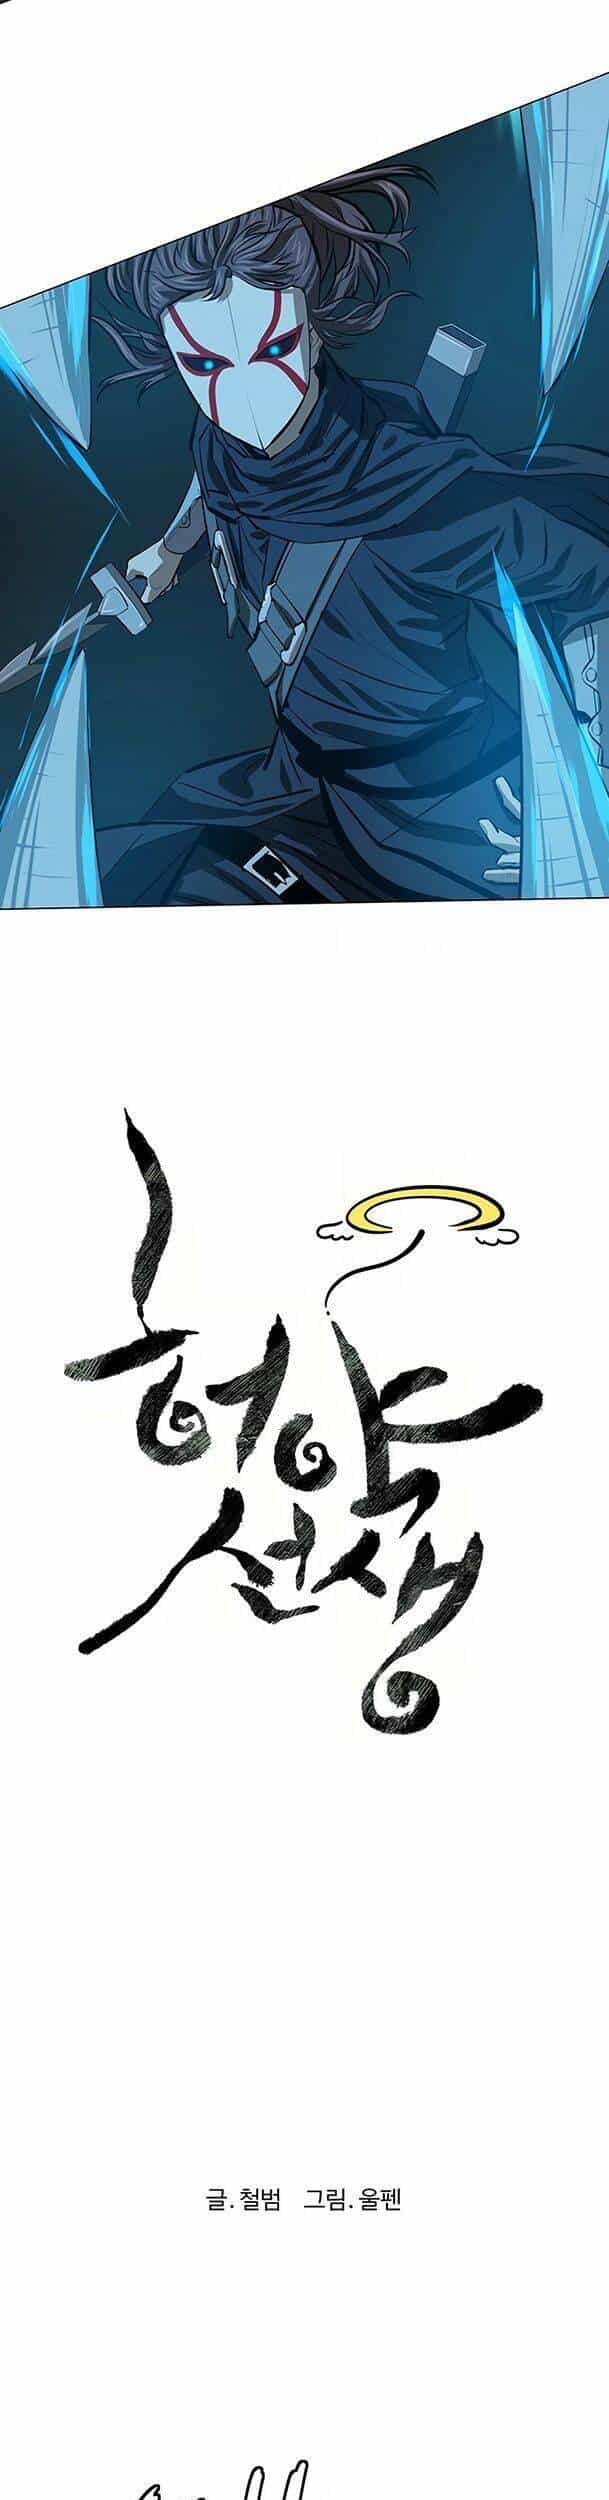 허약
선생
글. 철범 그림. 울펜